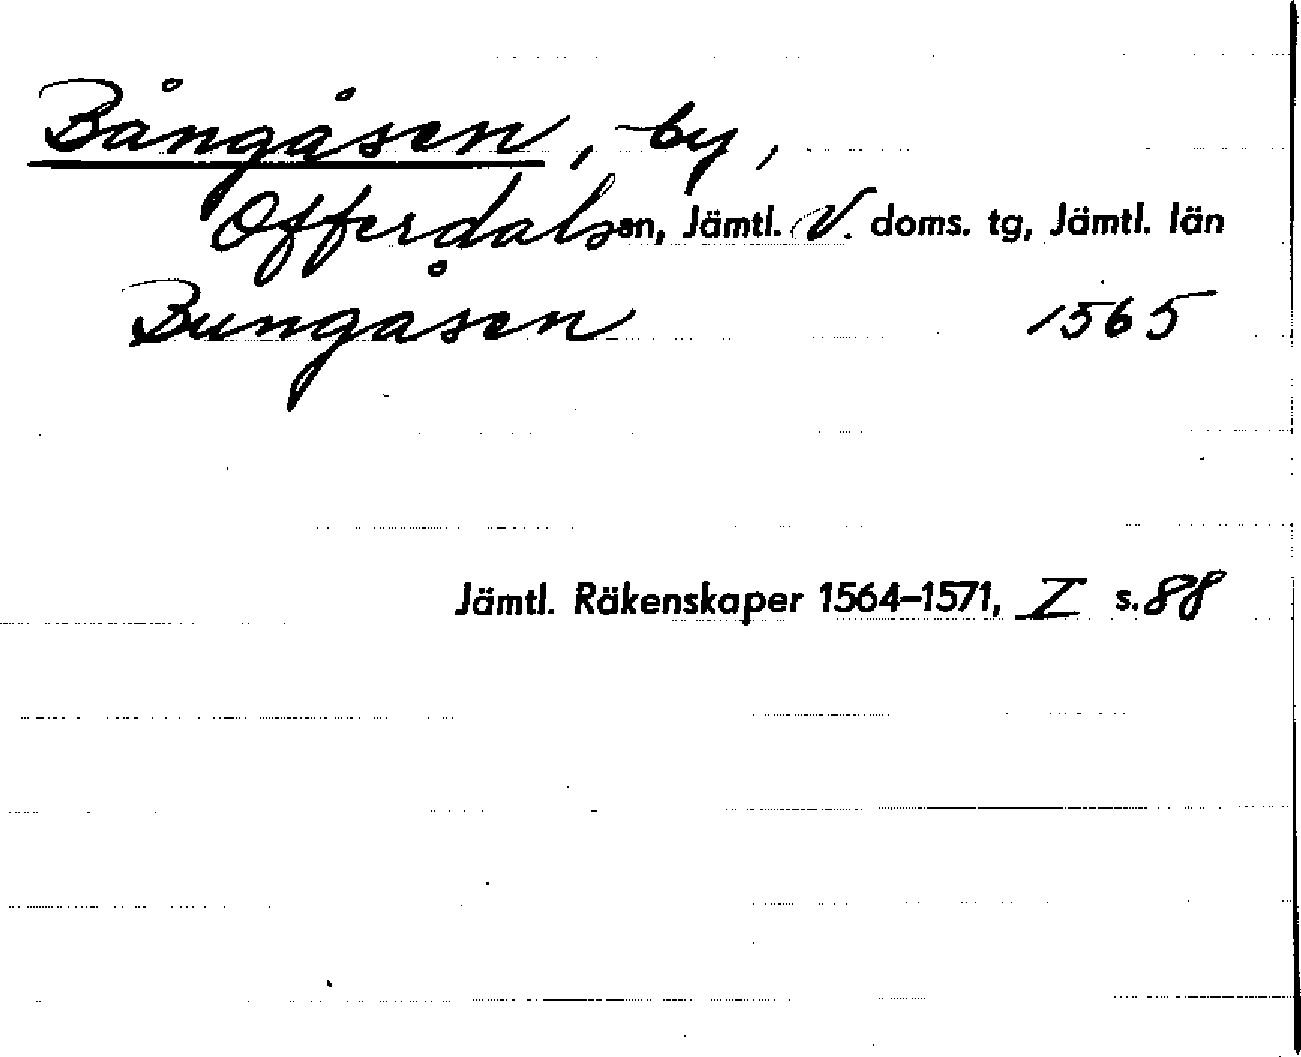 Bångåsen, by,
Offerdals sn, Jämtl. V. doms. tg, Jämtl. län
Bungåsen 1565
Jämtl. Räkenskaper 1564–1571, I s. 88